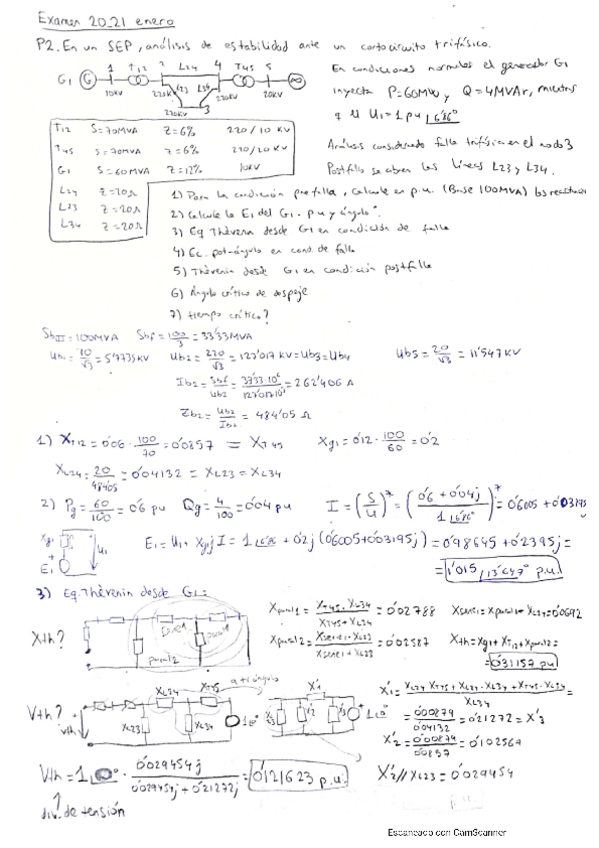 Examen 20_21 enero
P2. En un SEP, análisis de estabilidad ante un cortocircuito trifásico.
G1 G 1 T12 2 L24 4 T45 5 ∞
10KV 220KV L23 L34 220KV 20KV
220KV 3
En condiciones normales el generador G1
inyecta P=60MW y Q=4MVAr, mientras
q el U1=1pu |6'86°
Análisis considerando falla trifásica en el nodo 3
Postfalla se abren las líneas L23 y L34.
T12 S=70MVA Z=6% 220/10 KV
T45 S=70MVA Z=6% 220/20 KV
G1 S=60MVA Z=12% 10KV
L24 Z=20Ω
L23 Z=20Ω
L34 Z=20Ω
1) Para la condición prefalla, calcule en p.u. (Base 100MVA) las
2) Calcule la E1 del G1. pu y ángulo°.
3) Eq Thévenin desde G1 en condición de falla
4) Ec. pot-ángulo en cond. de falla
5) Thévenin desde G1 en condición postfalla
6) Ángulo crítico de despeje
7) tiempo crítico?
SbIII=100MVA Sbf=100/3=33'33MVA
Ub1=10/√3=5'7735KV Ub2=220/√3=127'017 KV=Ub3=Ub4 Ub5=20/√3=11'547KV
Ib2=Sbf/Ub2=33'33·10⁶/127'017·10³=262'406 A
Zb2=Ub2/Ib2=484'05 Ω
1) XT12=0'06·100/70=0'0857=XT45 Xg1=0'12·100/60=0'2
XL24=20/484'05=0'04132=XL23=XL34
2) Pg=60/100=0'6 pu Qg=4/100=0'04 pu I=(S/U)*=(0'6+0'04j/1|6'86°)*=0'6005+0'03195j
Xg1 E1 U1 E1=U1+Xgj I=1|6'86+0'2j(0'6005+0'03195j)=0'98645+0'2395j=
=1'015/13'647° p.u.
3) Eq. Thévenin desde G1:
Xth? serie1 paral1 paral2
Xparal1=XT45·XL34/XT45+XL34=0'02788 Xserie1=Xparal1+XL24=0'0692
Xparal2=Xserie1·XL23/Xserie1+XL23=0'02587 Xth=Xg1+XT12+Xparal2=
=0'31157 pu
Vth? Vth XL24 XT45 a triángulo XL23 XL34 1|0° X'1 X'2 X'3 1|0°
X'1=XL24·XT45+XL24·XL34+XT45·XL34/XL34=
=0'00879/0'04132=0'21272=X'3
X'2=0'00879/0'0857=0'102569
X'2//XL23=0'029454
Vth=1|0°·0'029454j/0'029454j+0'21272j=0'121623 p.u.
div. de tensión
Escaneado con CamScanner